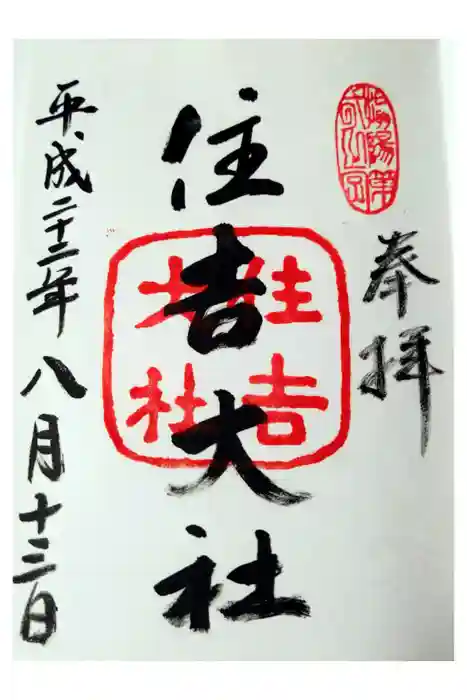 奉拝
住吉大社
住吉
大社
平成二十二年八月十三日